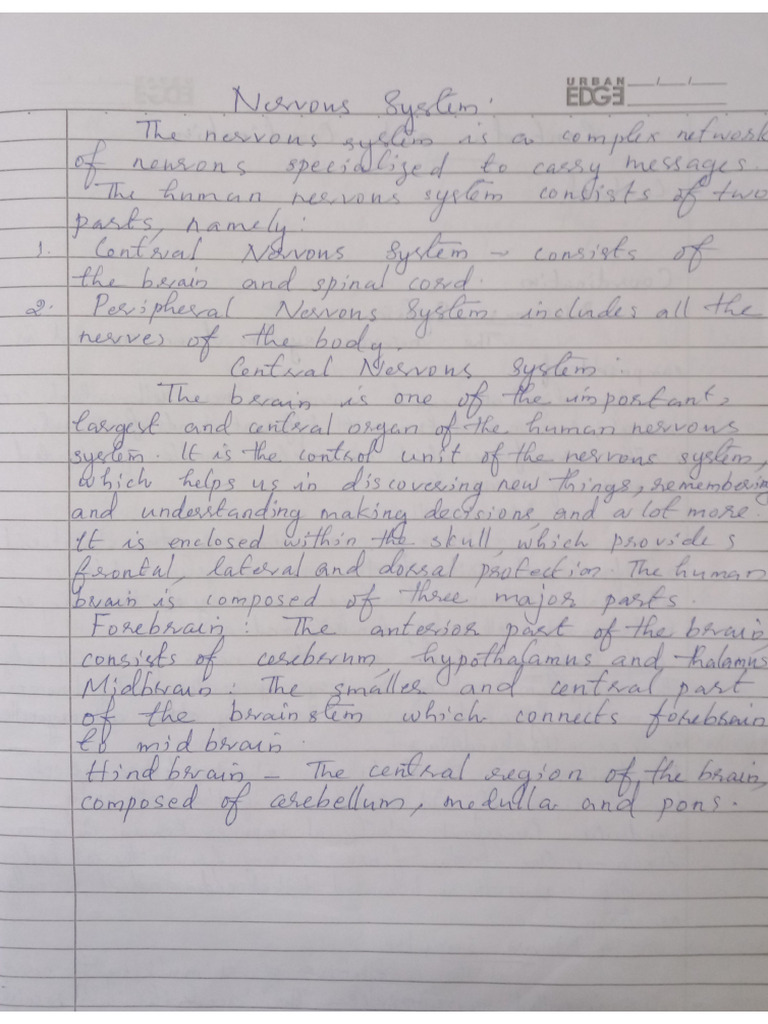 URBAN
EDGE
Nervous System:
The nervous system is a complex network
of neurons specialized to carry messages.
The human nervous system consists of two
parts, namely:
1. Central Nervous System - consists of
the brain and spinal cord.
2. Peripheral Nervous System includes all the
nerves of the body.
Central Nervous System:
The brain is one of the important,
largest and central organ of the human nervous
system. It is the control unit of the nervous system,
which helps us in discovering new things, remembering
and understanding making decisions, and a lot more.
It is enclosed within the skull, which provides
frontal, lateral and dorsal protection. The human
brain is composed of three major parts.
Forebrain: The anterior part of the brain,
consists of cerebrum, hypothalamus and thalamus
Midbrain: The smaller and central part
of the brainstem which connects forebrain
to midbrain.
Hindbrain - The central region of the brain,
composed of cerebellum, medulla and pons.